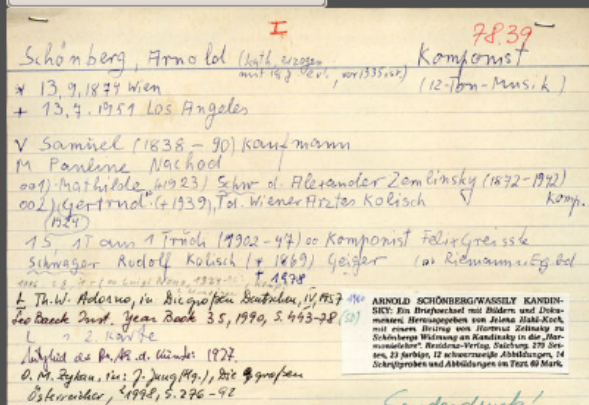 I
78.39
Schönberg, Arnold (kath. erzogen Komponist
mit 18 J. ev., vor 1935 isr.) (12-Ton-Musik)
* 13.9.1874 Wien
+ 13.7.1951 Los Angeles
V Samuel (1838 - 90) Kaufmann
M Pauline Nachod
oo1) Mathilde (+1923) Schw d. Alexander Zemlinsky (1872-1942) Komp.
oo2) Gertrud (+1939), Td. Wiener Arztes Kolisch
(1924)
1 S 1T aus 1 Trudi (1902-47) oo Komponist Felix Greissle
Schwager Rudolf Kolisch (* 1869) Geiger
+ 1978
L Th. W. Adorno, in Die großen Deutschen, IV, 1957
Leo Baeck Inst. Year Book 35, 1990, S. 443-78
L n 2. Karte
Mitglied der Pr. Ak. d. Künste 1927
O. M. Zykan, in: J. Jung (Hg.), Die großen
Österreicher, 1998, S. 276-92
ARNOLD SCHÖNBERG/WASSILY KANDIN-
SKY: Ein Briefwechsel mit Bildern und Doku-
menten. Herausgegeben von Jelena Hahl-Koch,
mit einem Beitrag von Hartmut Zelinsky zu
Schönbergs Widmung an Kandinsky in die „Har-
monielehre“. Residenz-Verlag, Salzburg. 279 Sei-
ten, 23 farbige, 12 schwarzweiße Abbildungen, 14
Schriftproben und Abbildungen im Text. 69 Mark.
Sonderdruck!